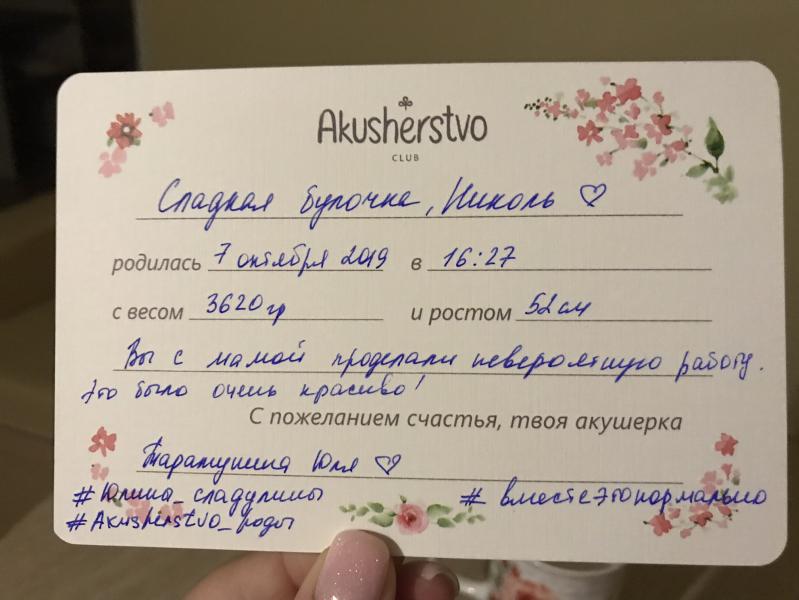 Akusherstvo
CLUB
Сладкая булочка, Николь ♡
родилась 7 октября 2019 в 16:27
с весом 3620 гр и ростом 52 см
Вы с мамой проделали невероятную работу.
Это было очень красиво!
С пожеланием счастья, твоя акушерка
Таратушина Юля ♡
#Юлина_сладулины #вместеэтонормально
#Akusherstvo_роды